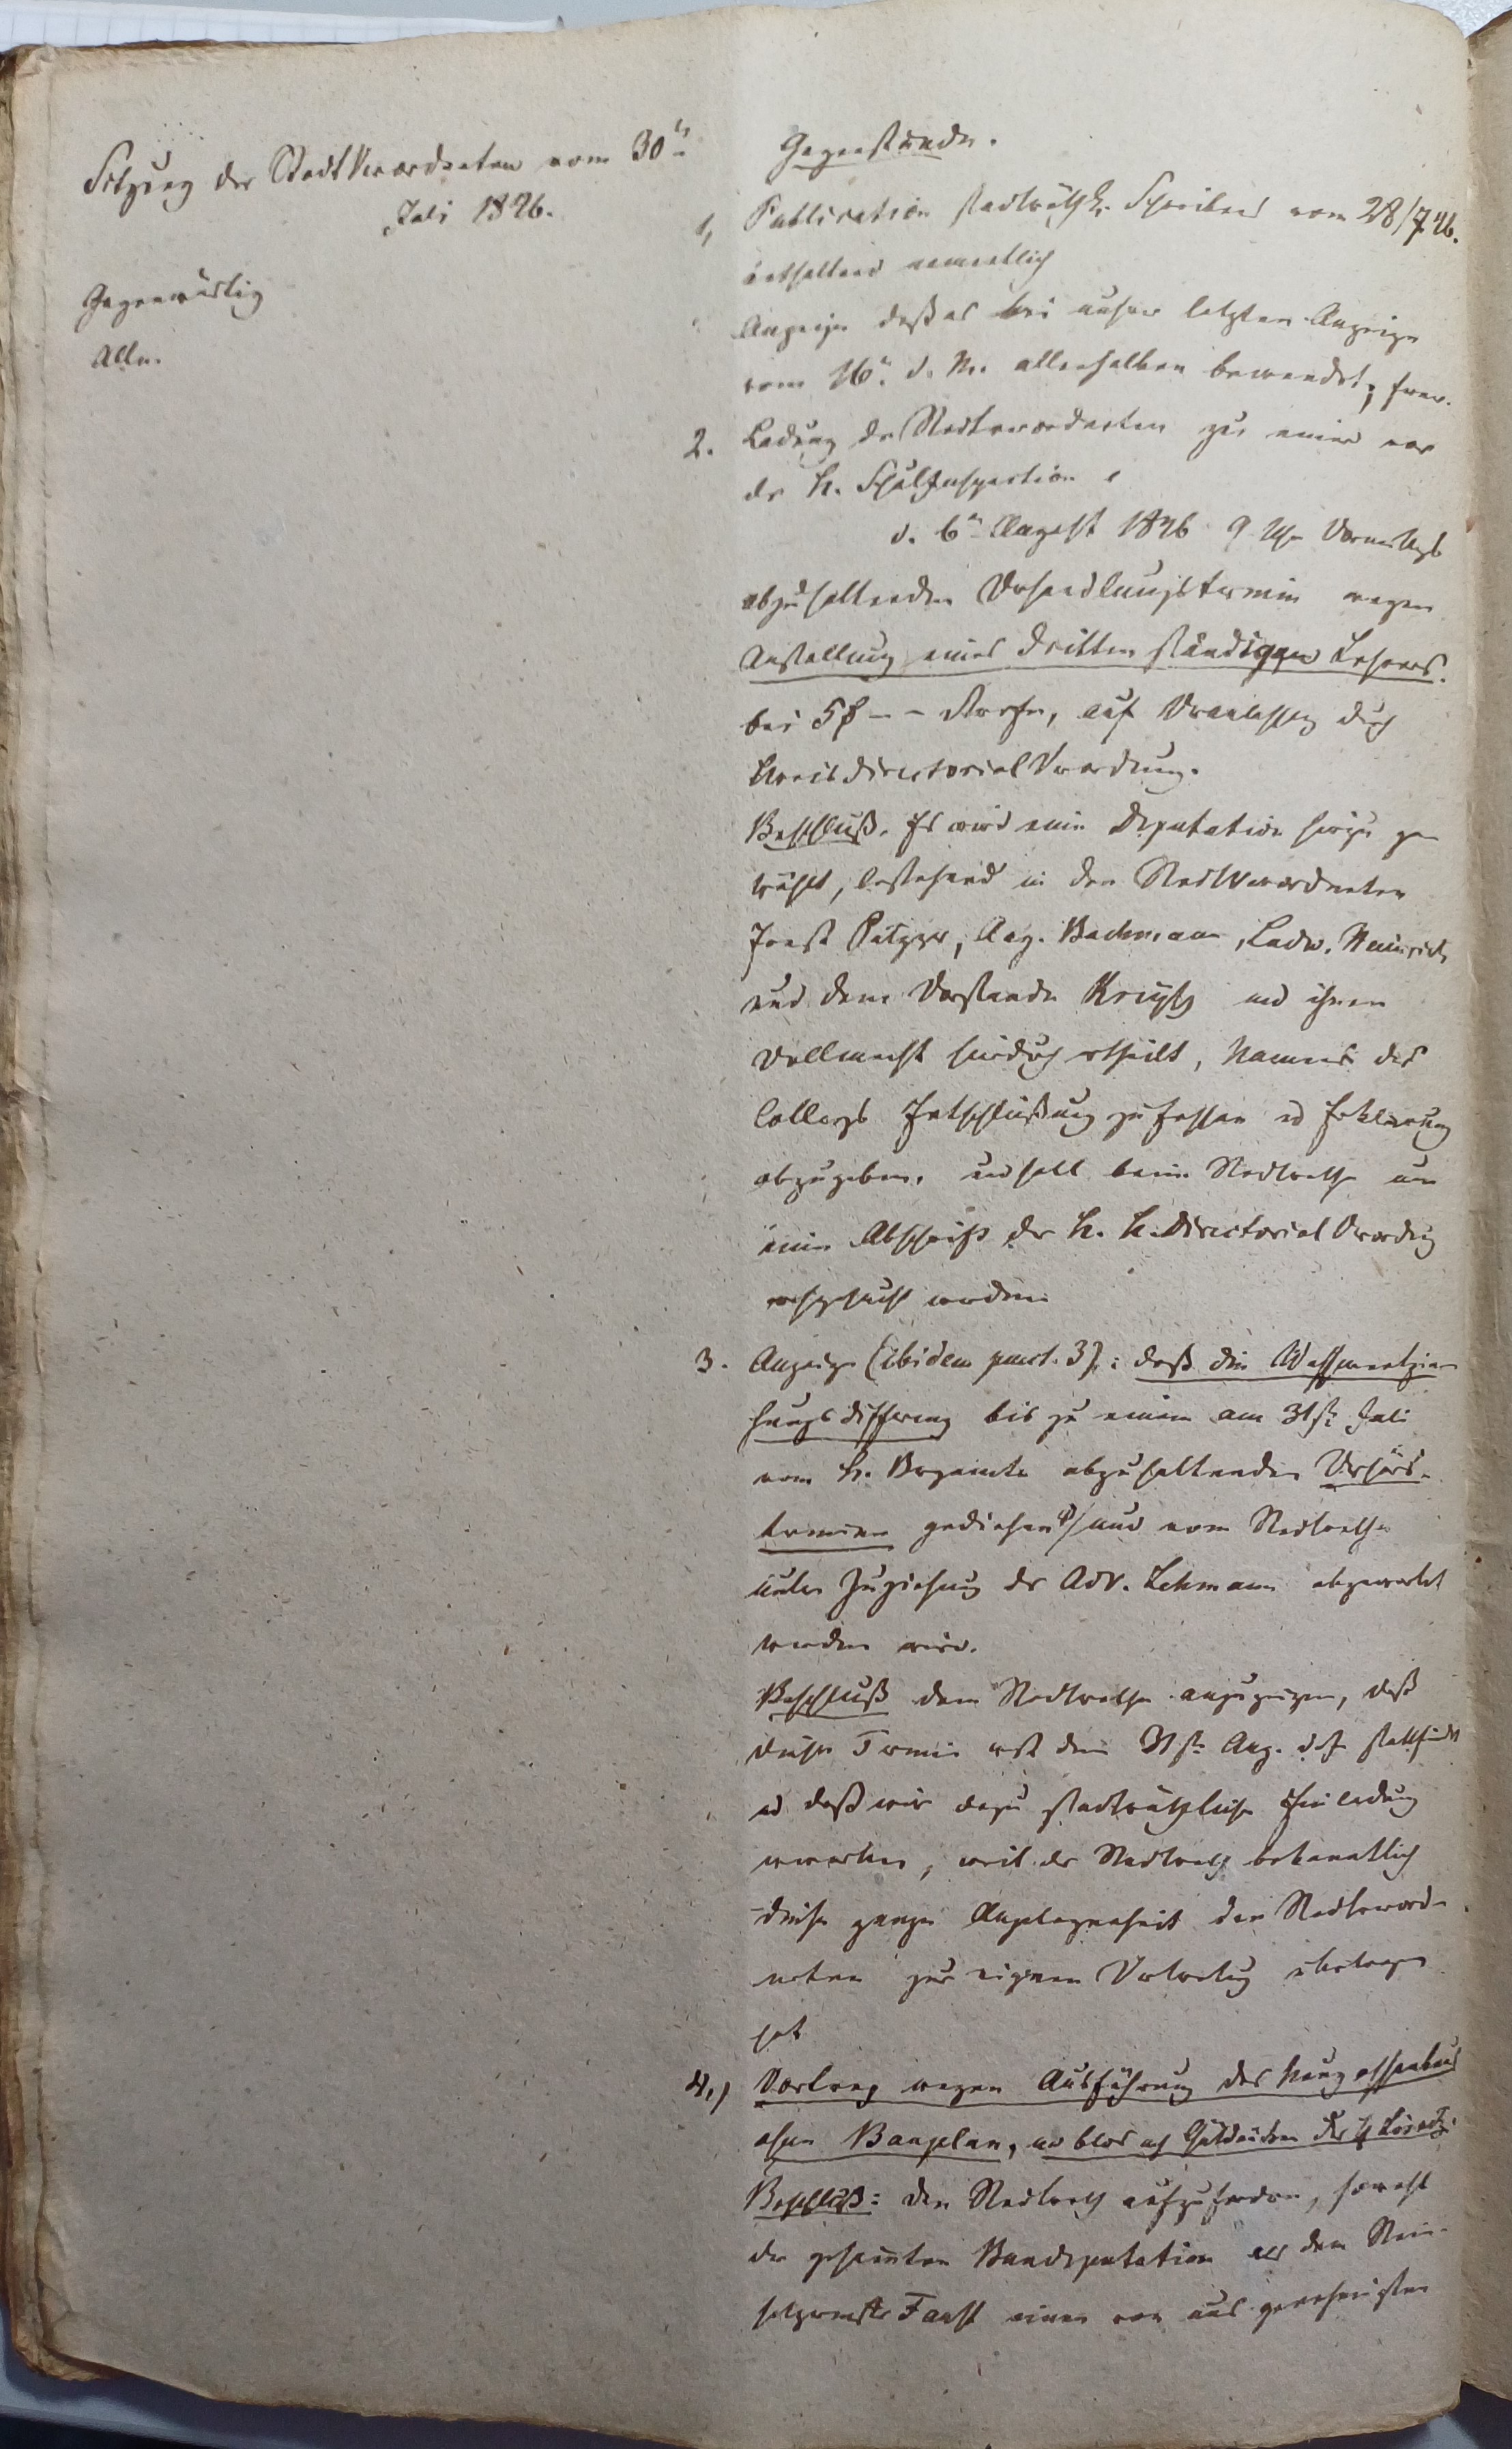 Sitzung der Stadtverordneten vom 30n
Juli 1846.
Gegenwärtig
Alle.
Gegenstände.
1, Publication stadträthl. Schreibens vom 28/7 46.
enthaltend namentlich
Anzeige daß es bei unsrer letzten Anzeige
vom 16n. d. M. allenthalben bewendet;
2. Ladung der Stadtverordneten zu einem vor
der K. Schulinspection
d. 6n August 1846 9 Uhr Vormittags
abzuhaltenden Verhandlungstermin wegen
Anstellung eines dritten ständigen Lehrers.
bei 5 – – Strafe, auf Veranlassg durch
Kreisdirectorial Verordnung.
Beschluß. Es wird eine Deputation hierzu ge
wählt, bestehend in den Stadtverordneten
Ernst Aug. Bachmann, Ludw. Heinrich
und dem Vorstande und ihnen
Vollmacht hierdurch ertheilt, Namens des
Collegs Entschließung zu fassen u Erklärung
abzugeben. und soll beim Stadtrathe um
eine Abschrift der K. K. Directorial Verordng
nachgesucht werden
3. Anzeige (ibidem punct. 3).: daß die Wasserentzie
hungsdifferenz bis zu einem am 31st Juli
vom K. Bergamte abzuhaltenden Verhörs-
termine gediehen und vom Stadtrathe
unter Zuziehung des Adv. Lehmann abgewartet
werden wird.
Beschluß dem Stadtrathe anzuzeigen, daß
dieser Termin erst den 31st. Aug. d. J. stattfindet
u daß wir dazu stadträthliche Einladung
erwarten, weil der Stadtrath bekanntlich
diese ganze Angelegenheit den Stadtverord
neten zur eignen Vertretung übertragen
hat
4.) Vortrag wegen Ausführung des
ohne Bauplan, blos nach Gutdünken
Beschluß: den Stadtrath aufzufordern, sowohl
der gesammten Baudeputation als dem Stein-
setzermstr Faust einen von uns genehmigten